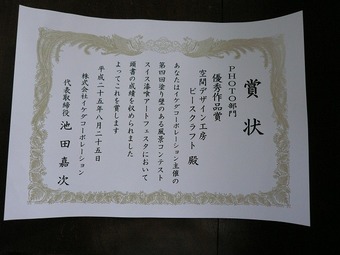 賞状
PHOTO部門
優秀作品賞
空間デザイン工房
ピースクラフト 殿
あなたはイケダコーポレーション主催の
第四回塗り壁のある風景コンテスト
スイス漆喰アートフェスタにおいて
頭書の成績を収められました
よってこれを賞します
平成二十五年八月二十五日
株式会社イケダコーポレーション
代表取締役 池田嘉次